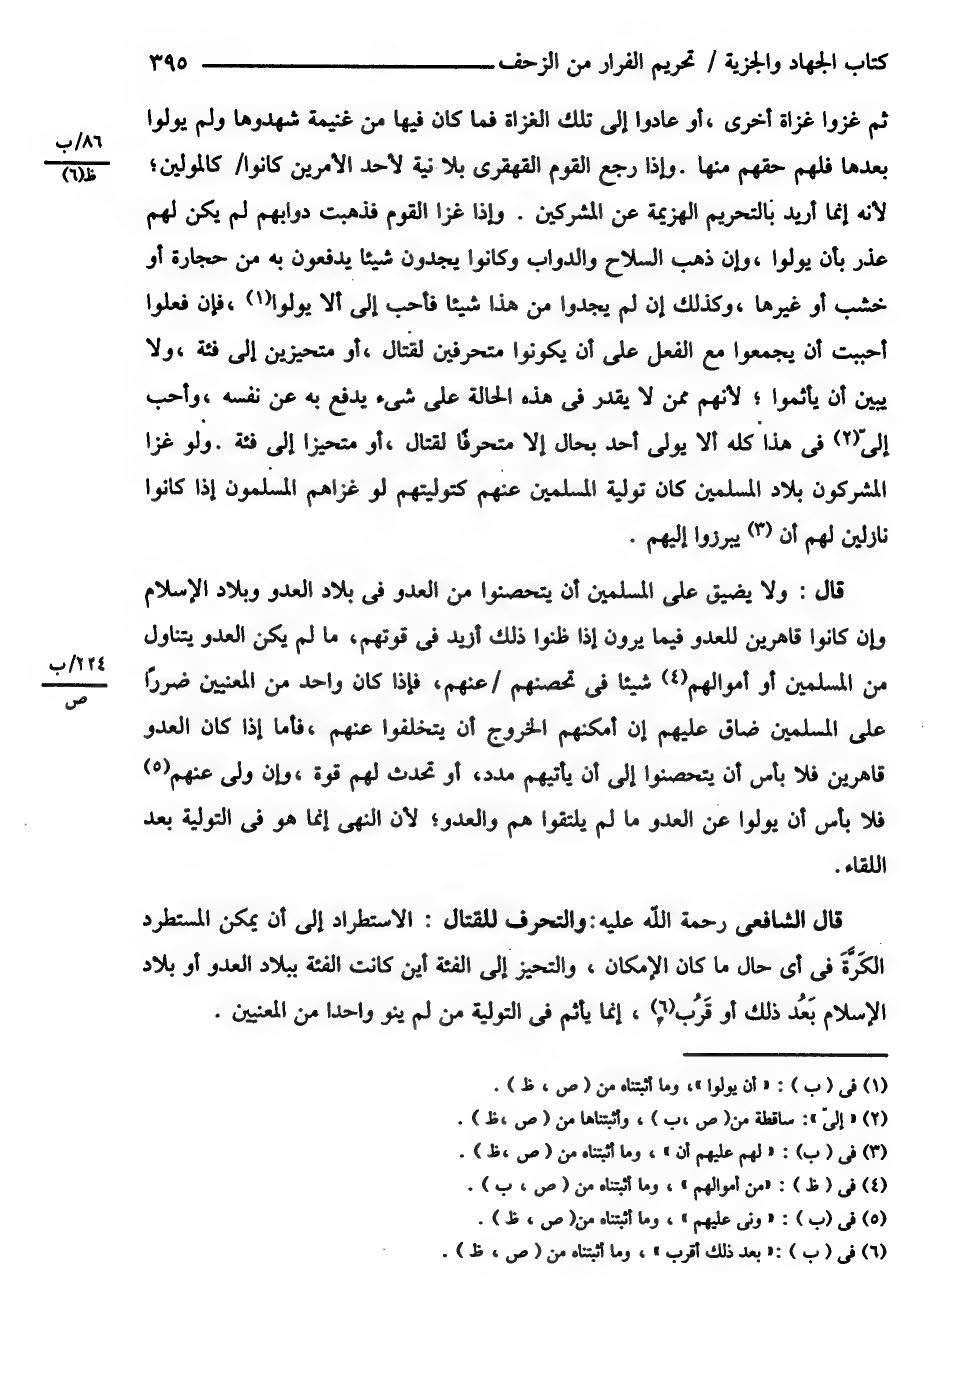 كتاب الجهاد والجزية / تحريم الفرار من الزحف ــــــــــ ٣٩٥
ثم غزوا غزاة أخرى ،أو عادوا إلى تلك الغزاة فما كان فيها من غنيمة شهدوها ولم يولوا
بعدها فلهم حقهم منها .وإذا رجع القوم القهقرى بلا نية لأحد الأمرين كانوا/ كالمولين؛
٨٦/ب
ظ(٦)
لأنه إنما أريد بالتحريم الهزيمة عن المشركين . وإذا غزا القوم فذهبت دوابهم لم يكن لهم
عذر بأن يولوا ،وإن ذهب السلاح والدواب وكانوا يجدون شيئا يدفعون به من حجارة أو
خشب أو غيرها ،وكذلك إن لم يجدوا من هذا شيئا فأحب إلى ألا يولوا(١) ،فإن فعلوا
أحببت أن يجمعوا مع الفعل على أن يكونوا متحرفين لقتال ،أو متحيزين إلى فئة ،ولا
يبين أن يأثموا ؛ لأنهم ممن لا يقدر فى هذه الحالة على شىء يدفع به عن نفسه ،وأحب
إلىّ(٢) فى هذا كله ألا يولى أحد بحال إلا متحرفًا لقتال ،أو متحيزا إلى فئة .ولو غزا
المشركون بلاد المسلمين كان تولية المسلمين عنهم كتوليتهم لو غزاهم المسلمون إذا كانوا
نازلين لهم أن (٣) يبرزوا إليهم .
قال : ولا يضيق على المسلمين أن يتحصنوا من العدو فى بلاد العدو وبلاد الإسلام
وإن كانوا قاهرين للعدو فيما يرون إذا ظنوا ذلك أزيد فى قوتهم، ما لم يكن العدو يتناول
من المسلمين أو أموالهم(٤) شيئا فى تحصنهم /عنهم، فإذا كان واحد من المعنيين ضررًا
٢٢٤/ب
ص
على المسلمين ضاق عليهم إن أمكنهم الخروج أن يتخلفوا عنهم ،فأما إذا كان العدو
قاهرين فلا بأس أن يتحصنوا إلى أن يأتيهم مدد، أو تحدث لهم قوة ،وإن ولى عنهم(٥)
فلا بأس أن يولوا عن العدو ما لم يلتقوا هم والعدو؛ لأن النهى إنما هو فى التولية بعد
اللقاء.
قال الشافعى رحمة الله عليه:والتحرف للقتال : الاستطراد إلى أن يمكن المستطرد
الكَرَّةَ فى أى حال ما كان الإمكان ، والتحيز إلى الفئة أين كانت الفئة ببلاد العدو أو بلاد
الإسلام بَعُد ذلك أو قَرُب(٦) ، إنما يأثم فى التولية من لم ينو واحدا من المعنيين .
(١) فى ( ب ) : « أن يولوا »، وما أثبتناه من ( ص ، ظ ) .
(٢) « إلىّ »: ساقطة من( ص ،ب ) ، وأثبتناها من ( ص ،ظ ) .
(٣) فى ( ب) : « لهم عليهم أن » ، وما أثبتناه من ( ص ،ظ ) .
(٤) فى ( ظ ) : «من أموالهم » ، وما أثبتناه من ( ص ، ب ) .
(٥) فى (ب ) : « ونى عليهم » ، وما أثبتناه من( ص ، ظ ) .
(٦) فى ( ب ) :« بعد ذلك أقرب » ، وما أثبتناه من ( ص ، ظ ) .